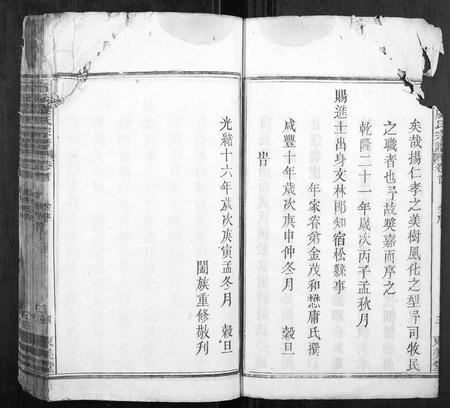 矣哉揚仁孝之美樹風化之型予司牧民
之職者也予故奬嘉而序之
乾隆二十一年歲次丙子孟秋月
賜進士出身文林郎知宿松縣事
年家眷弟金茂和懋庸氏撰
咸豐十年歲次庚申仲冬月　穀旦
光緒十六年歲次庚寅孟冬月　穀旦
闔族重修敬刋
氏宗譜
卷首